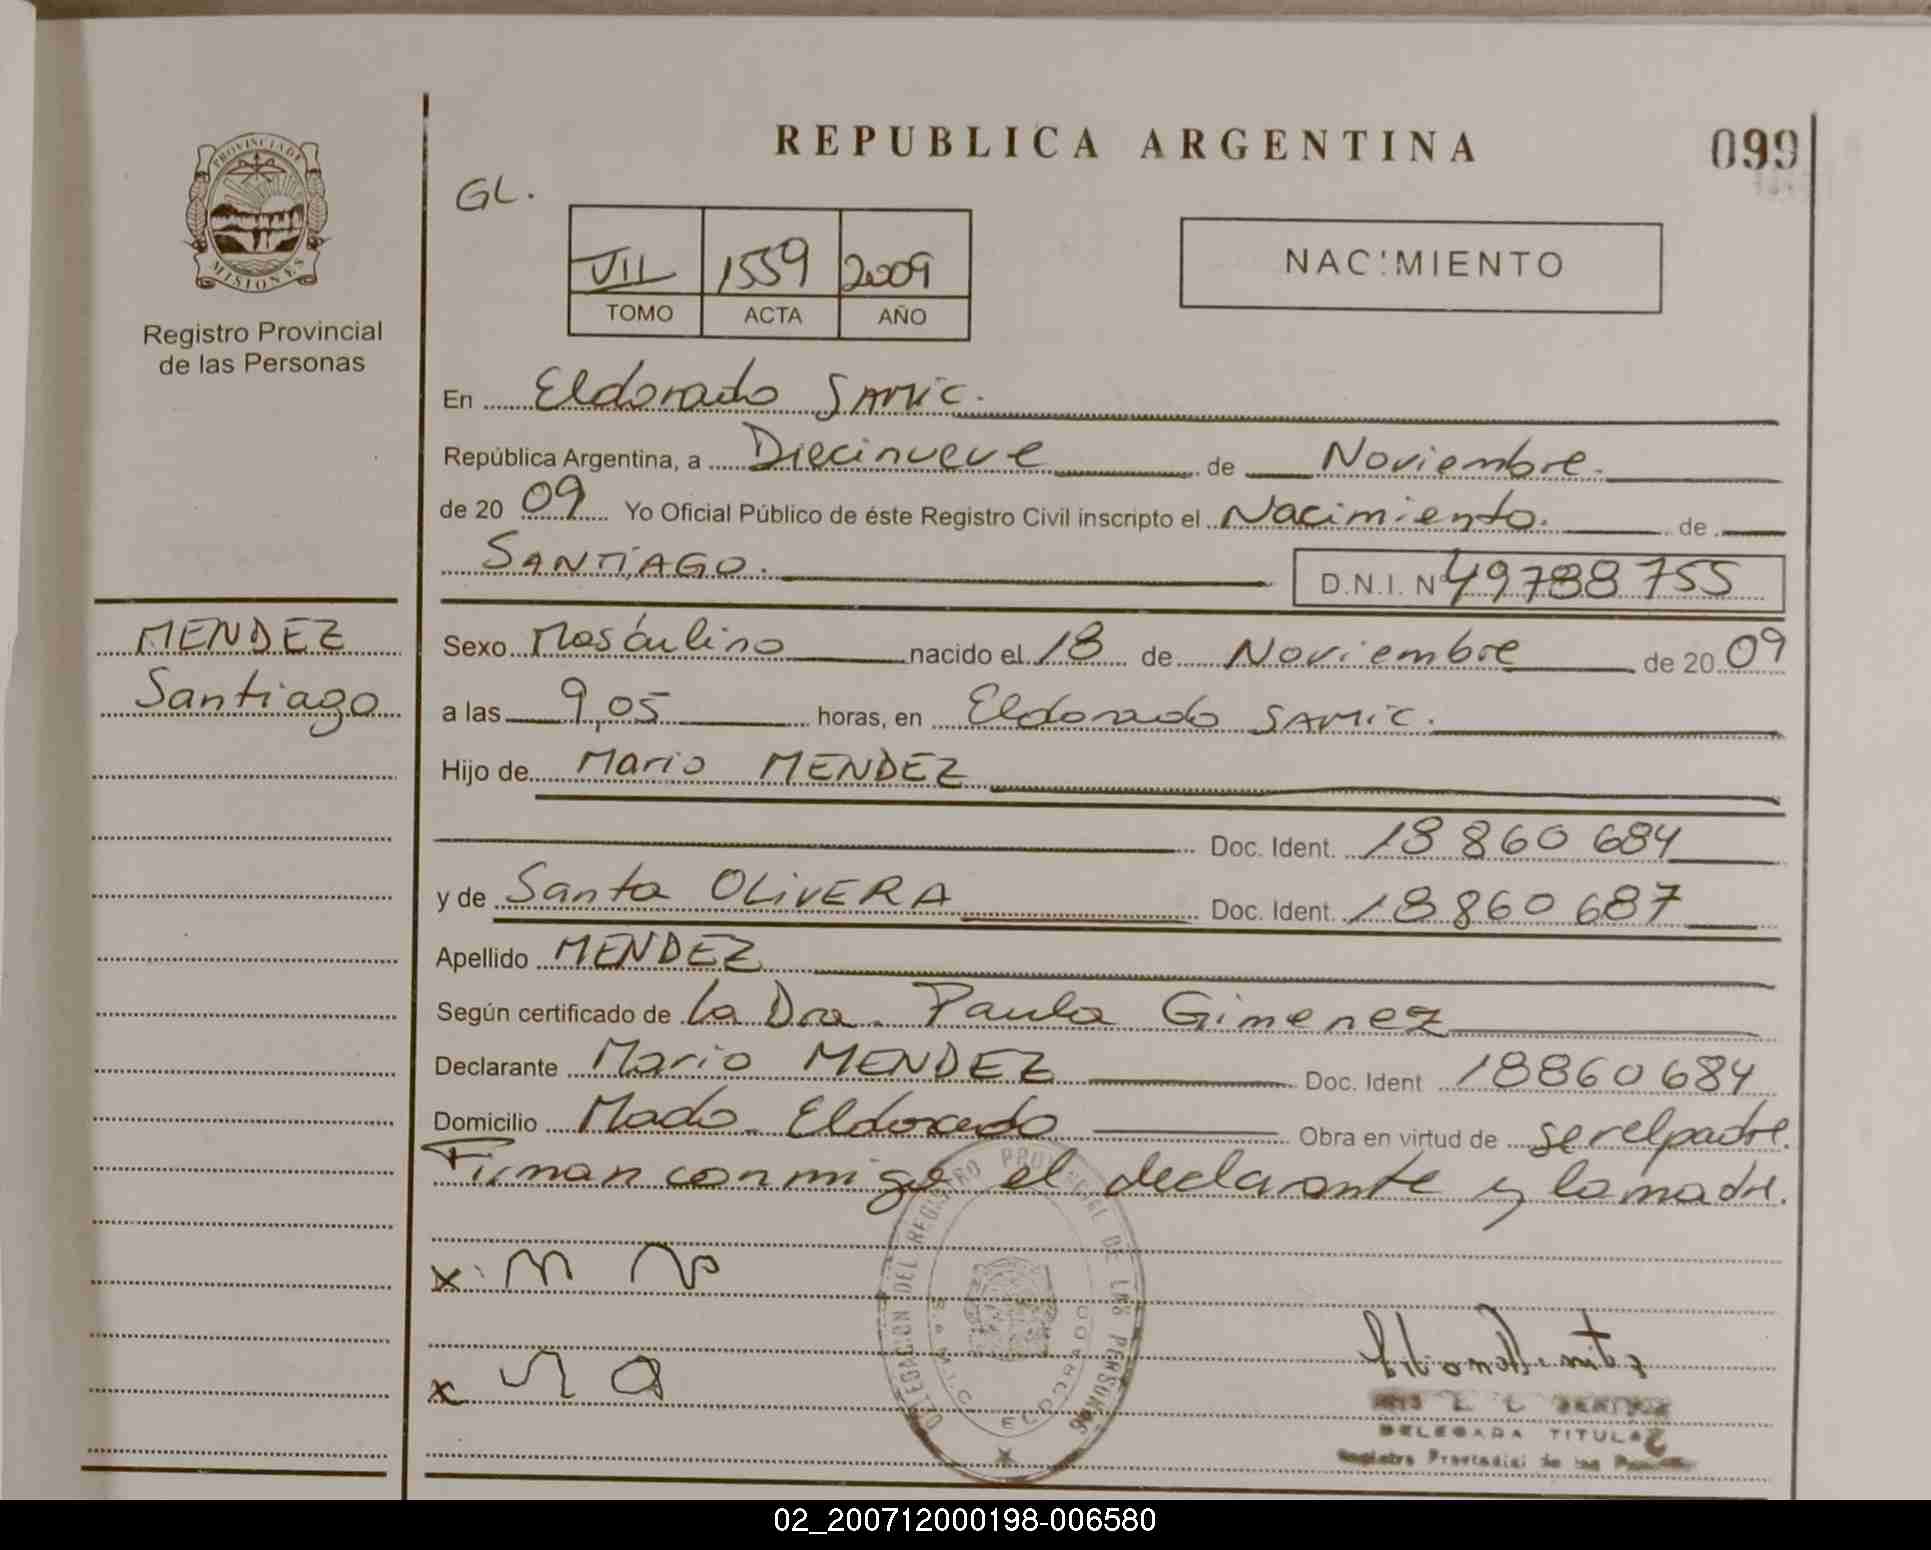 REPUBLICA ARGENTINA
099
PROVINCIA DE
MISIONES
Registro Provincial
de las Personas
GL.
VII 1559 2009
TOMO ACTA AÑO
NACIMIENTO
En Eldorado SAMIC.
República Argentina, a Diecinueve de Noviembre.
de 20 09 Yo Oficial Público de éste Registro Civil inscripto el Nacimiento. de
SANTIAGO. D.N.I. Nº 49788755
MENDEZ
Santiago
Sexo Masculino nacido el 18 de Noviembre de 20 09
a las 9,05 horas, en Eldorado SAMIC.
Hijo de Mario MENDEZ
Doc. Ident. 18 860 684
y de Santa OLIVERA Doc. Ident. 18 860 687
Apellido MENDEZ
Según certificado de La Dra. Paula Gimenez
Declarante Mario MENDEZ Doc. Ident 18860684
Domicilio Mado. Eldorado Obra en virtud de ser el padre.
Firman conmigo el declarante y la madre.
x
x
DELEGACION DEL REGISTRO PROVINCIAL DE LAS PERSONAS
S.A.M.I.C. ELDORADO
DELEGADA TITULAR
Registro Provincial de las Personas
02_200712000198-006580